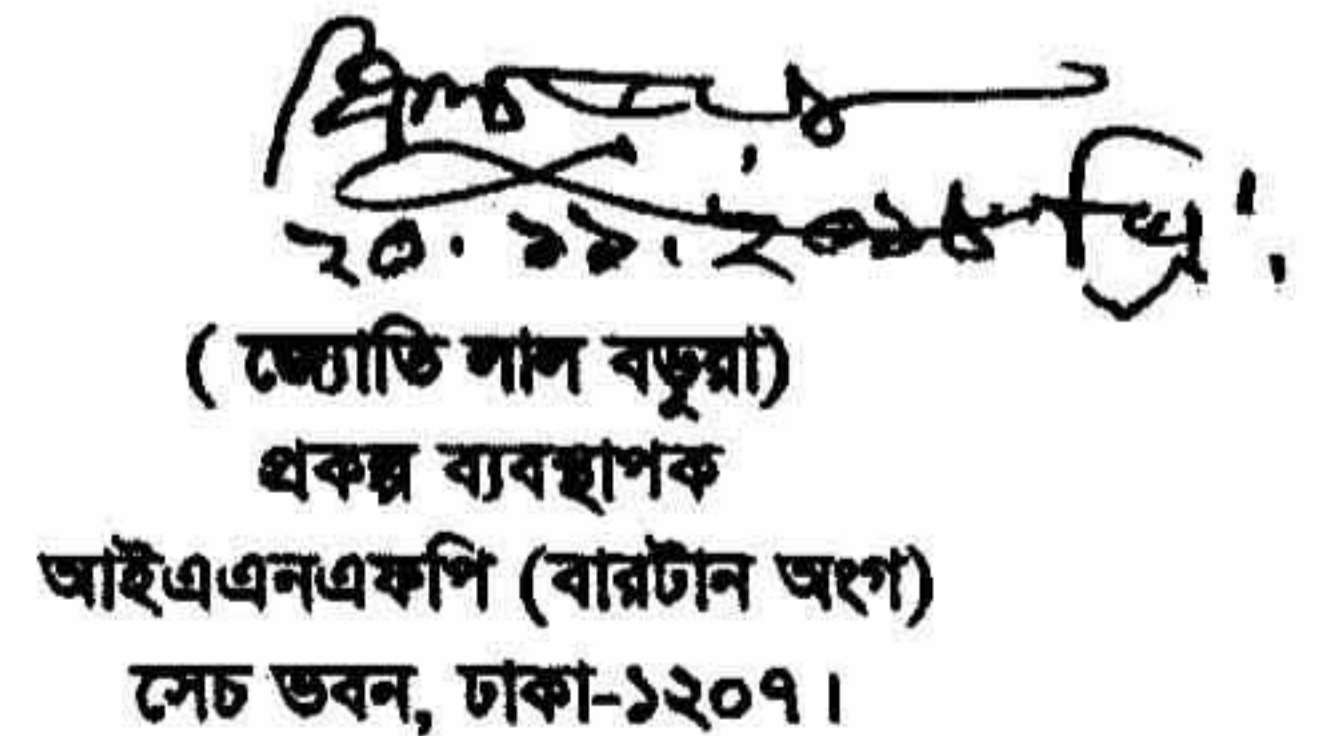 ২০.১১.২০১৩ খ্রি:
( জ্যোতি লাল বড়ুয়া)
প্রকল্প ব্যবস্থাপক
আইএএনএফপি (বারটান অংগ)
সেচ ভবন, ঢাকা-১২০৭।